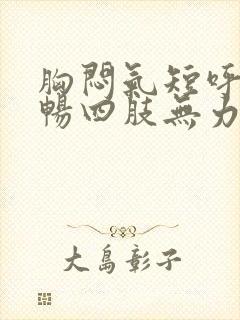 胸悶氣短呼
暢四肢無力
大島彰子